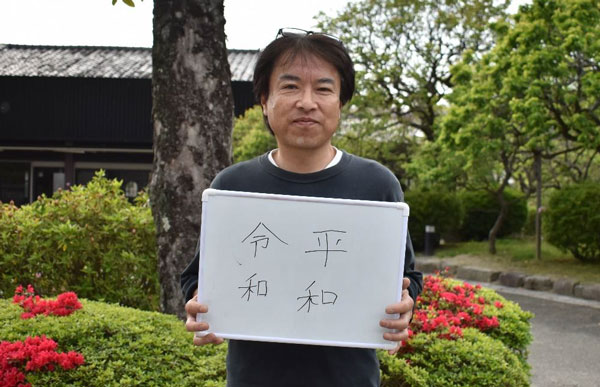 平和
令和